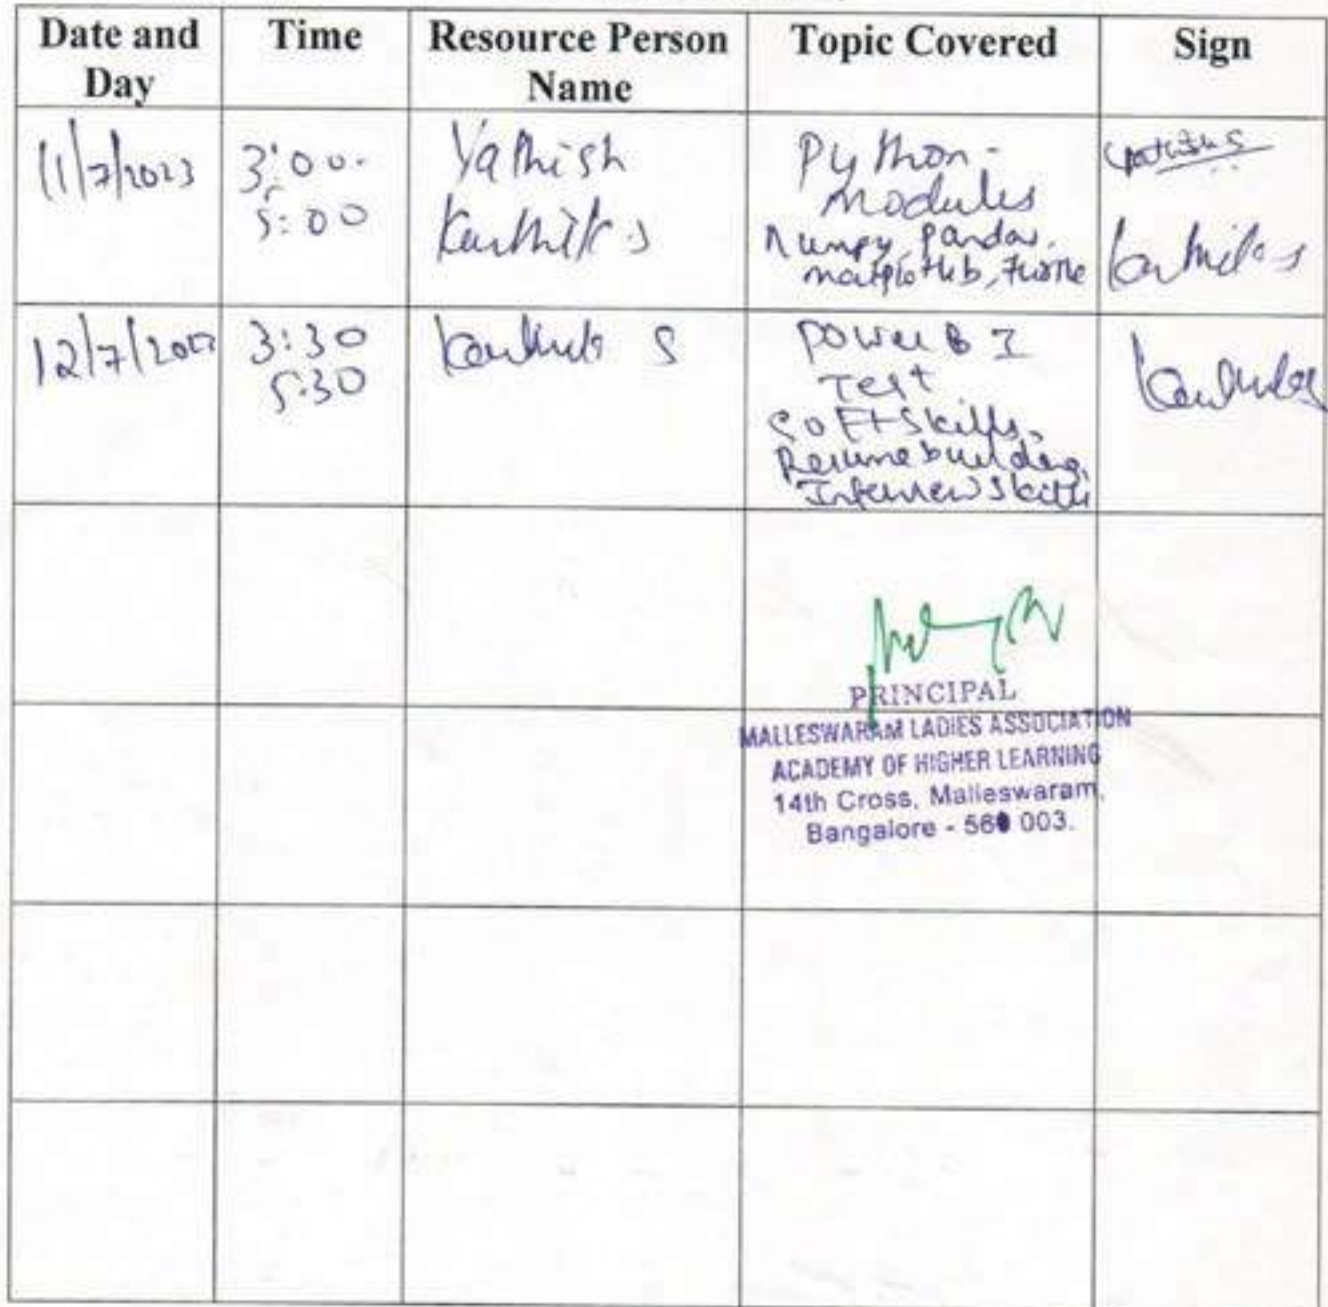 Date and Day
Time
Resource Person Name
Topic Covered
Sign
11/7/2023
3:00-
5:00
Yathish
Karthik S
Python -
modules
Numpy, Pandas,
matplotlib,
Karthik S
12/7/2023
3:30
5:30
Karthik S
Power BI
Test
Soft Skills,
Resume building,
Interview Skills
PRINCIPAL
MALLESWARAM LADIES ASSOCIATION
ACADEMY OF HIGHER LEARNING
14th Cross, Malleswaram,
Bangalore - 560 003.